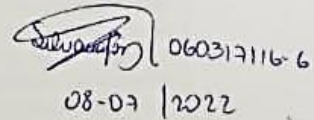 060317116-6
08-07 | 2022